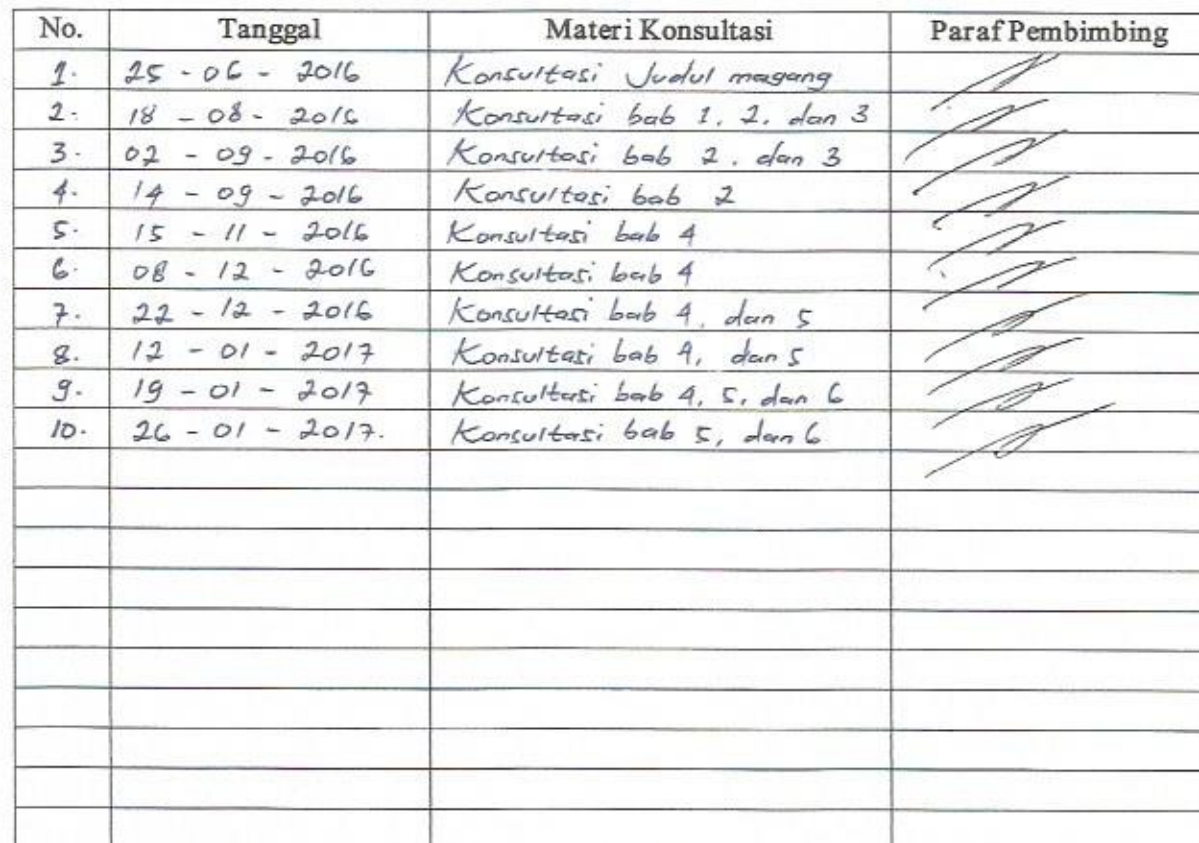 No. Tanggal Materi Konsultasi Paraf Pembimbing
1. 25 - 06 - 2016 Konsultasi Judul magang
2. 18 - 08 - 2016 Konsultasi bab 1, 2, dan 3
3. 02 - 09 - 2016 Konsultasi bab 2. dan 3
4. 14 - 09 - 2016 Konsultasi bab 2
5. 15 - 11 - 2016 Konsultasi bab 4
6. 08 - 12 - 2016 Konsultasi bab 4
7. 22 - 12 - 2016 Konsultasi bab 4, dan 5
8. 12 - 01 - 2017 Konsultasi bab 4, dan 5
9. 19 - 01 - 2017 Konsultasi bab 4, 5, dan 6
10. 26 - 01 - 2017. Konsultasi bab 5, dan 6